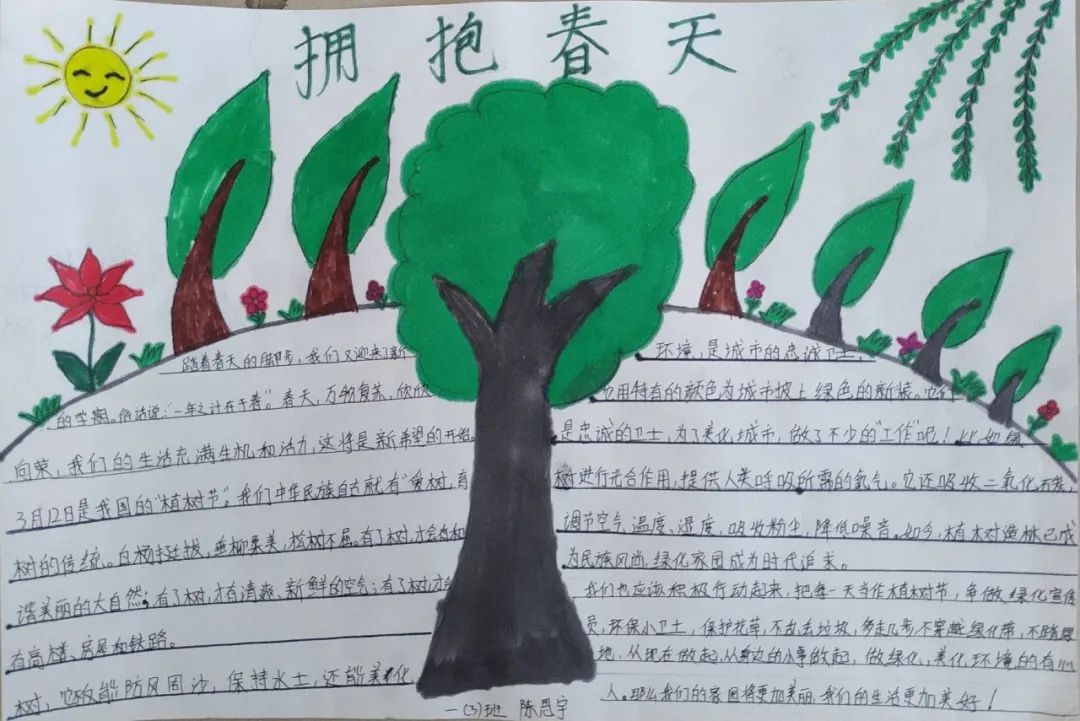 拥抱春天
踏着春天的脚步,我们又迎来了新
的学期。俗话说:“一年之计在于春”。春天,万物复苏,欣欣
向荣,我们的生活充满生机和活力,这将是新希望的开始。
3月12日是我国的“植树节”。我们中华民族自古就有“爱树,育
树的传统。白杨挺拔,垂柳柔美,松树不屈。有了树,才会有和
谐美丽的大自然;有了树,才有清爽、新鲜的空气;有了树,才会
有高楼、房屋和铁路。
树,它既能防风固沙,保持水土,还能美化
环境,是城市的忠诚卫士
也用特有的颜色为城市披上绿色的新装。它们
是忠诚的卫士,为了美化城市,做了不少的“工作”呢!比如绿
树进行光合作用,提供人类呼吸所需的氧气。它还吸收二氧化
调节空气温度、湿度,吸收粉尘,降低噪音。如今,植树造林已成
为民族风尚,绿化家园成为时代追求。
我们也应该积极行动起来,把每一天当作植树节,争做绿化宣传
员,环保小卫士,保护花草,不乱丢垃圾,多走几步,不穿越绿化带,不踏绿
地,从现在做起,从身边的小事做起,做绿化,美化环境的有心
人。那么我们的家园将更加美丽,我们的生活更加美好!
一(3)班 陈思宇